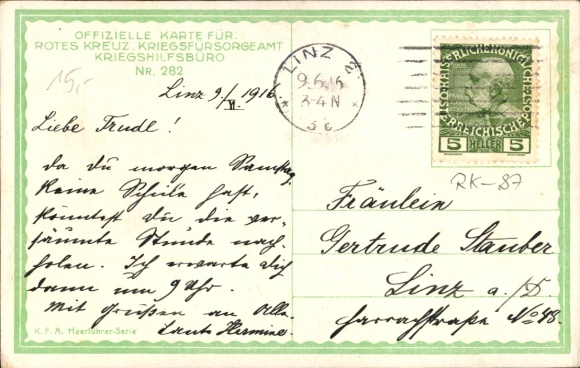 OFFIZIELLE KARTE FÜR:
ROTES KREUZ, KRIEGSFÜRSORGEAMT
KRIEGSHILFSBÜRO
NR. 282
15,-
Linz 9./VI. 1916.
Liebe Trudl!
da du morgen Samstag
keine Schule hast,
könntest du die ver-
säumte Stunde nach-
holen. Ich erwarte dich
dann um 9 Uhr.
Mit Grüßen an Alle
Tante Hermine.
K.F.A. Heerführer-Serie
LINZ 2
9.6.16
3-4 N
* 3c *
5 HELLER 5
RK-87
Fräulein
Gertrude Stauber
Linz a./D.
Harrachstraße No 48.